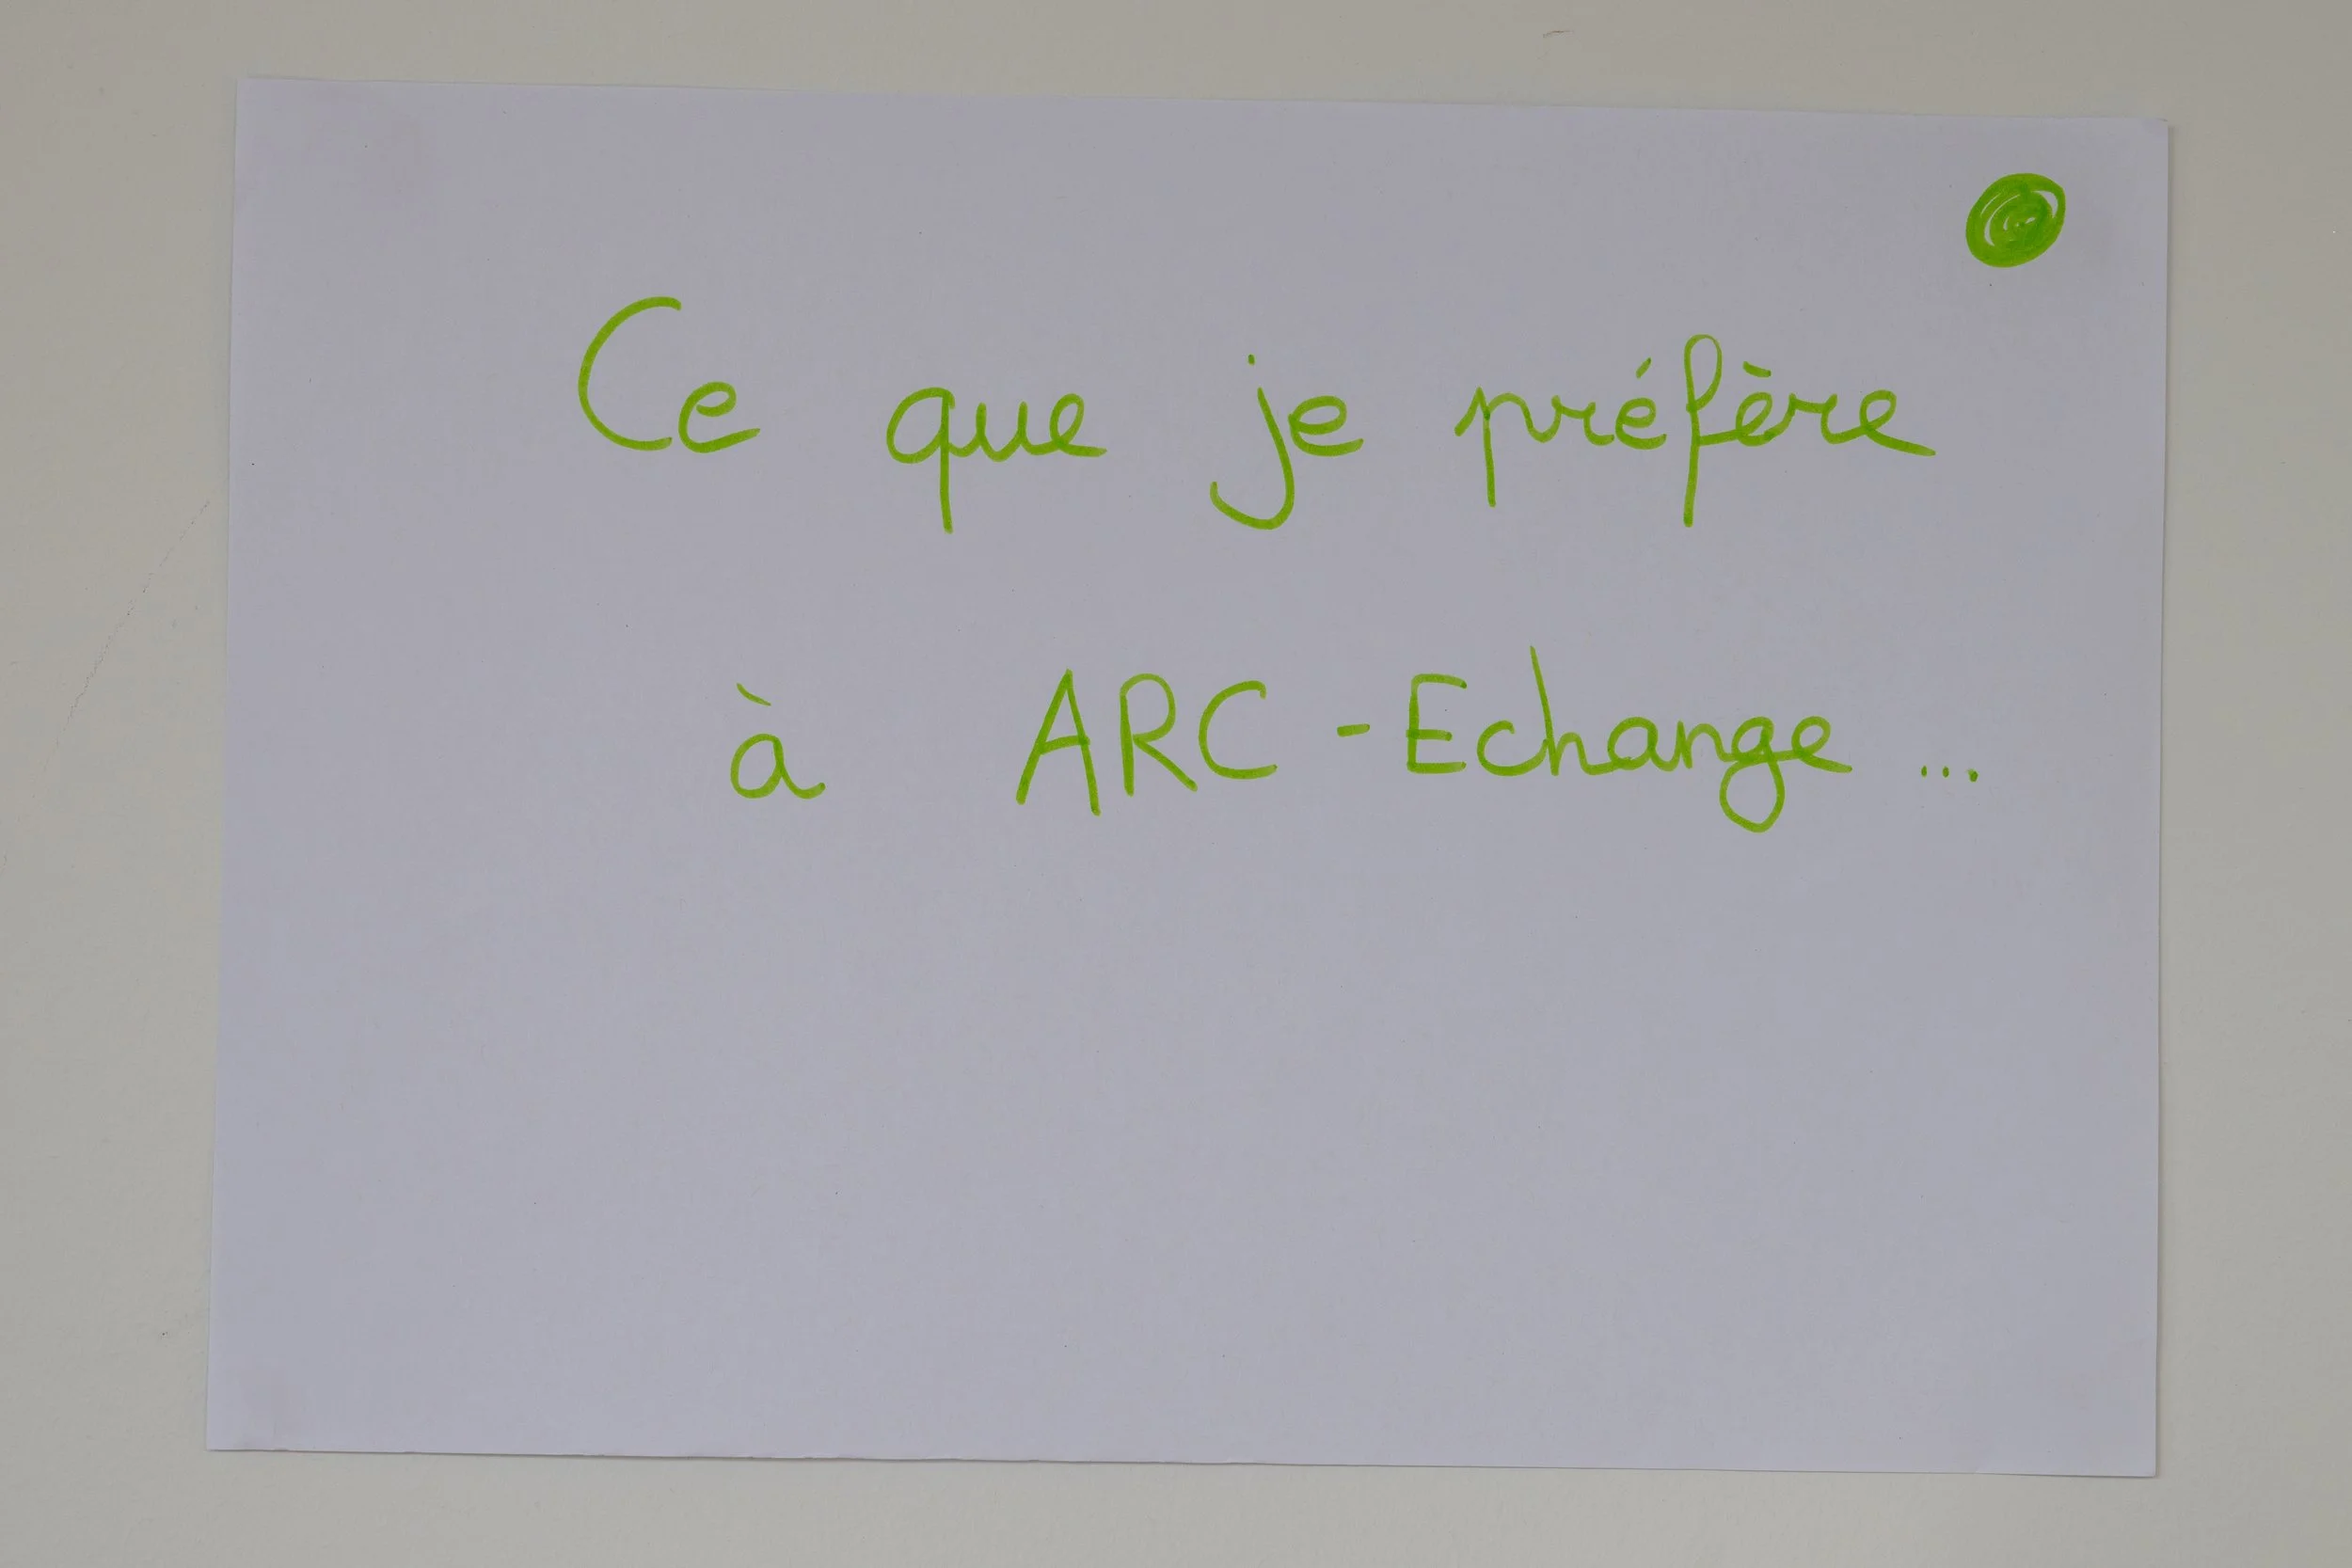 Ce que je préfère
à ARC - Echange ...